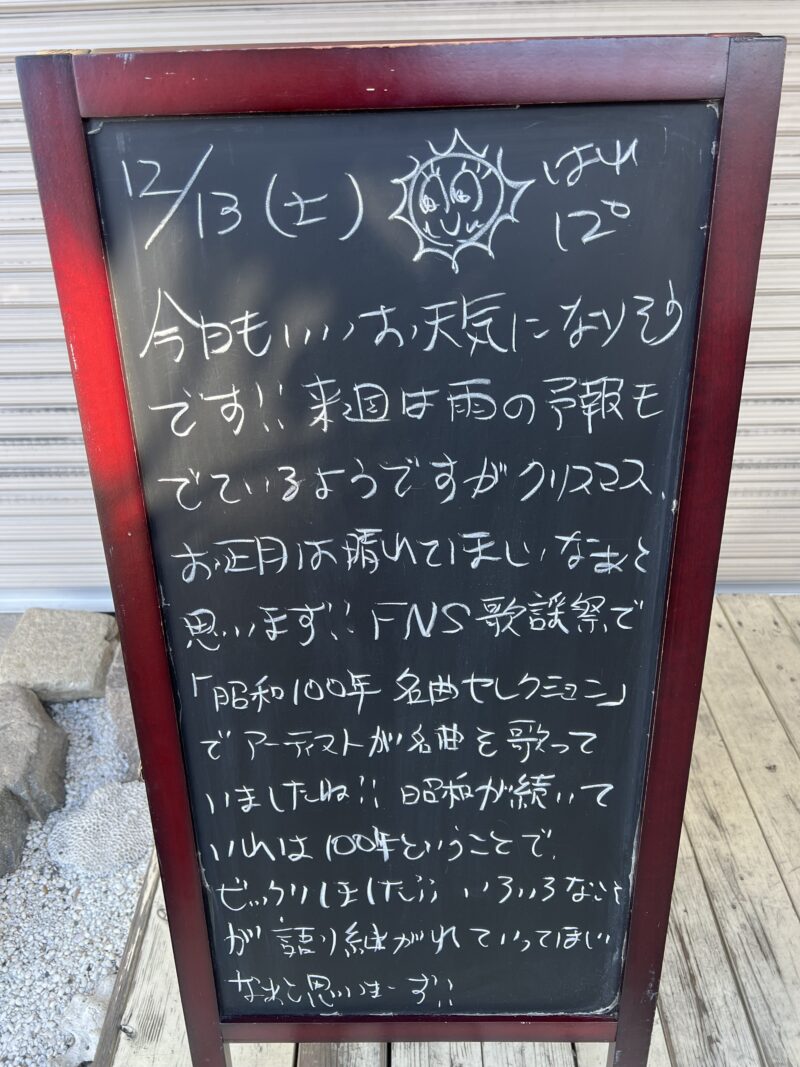 12/13(土) はれ 12°
今日もいいお天気になりそう
です!! 来週は雨の予報も
でているようですがクリスマス、
お正月は晴れてほしいなぁと
思います!! FNS歌謡祭で
「昭和100年 名曲セレクション」
でアーティストが名曲を歌って
いましたね!! 昭和が続いて
いれば100年ということで、
ビックリしました!! いろいろなこと
が語り継がれていってほしい
なぁと思いまーす!!